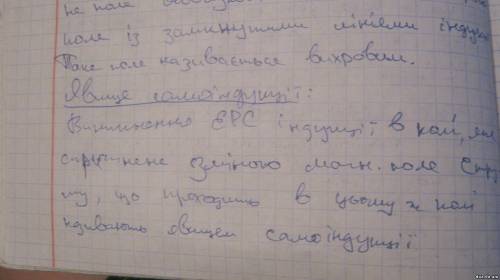 не поле
поле із замкнутими лініями індук
Таке поле називається вихровим.
Явище самоіндукції:
Виникнення ЕРС індукції в колі, яке
спричинене зміною магн. поле стру
му, що проходить в цьому ж колі
називають явищем самоіндукції